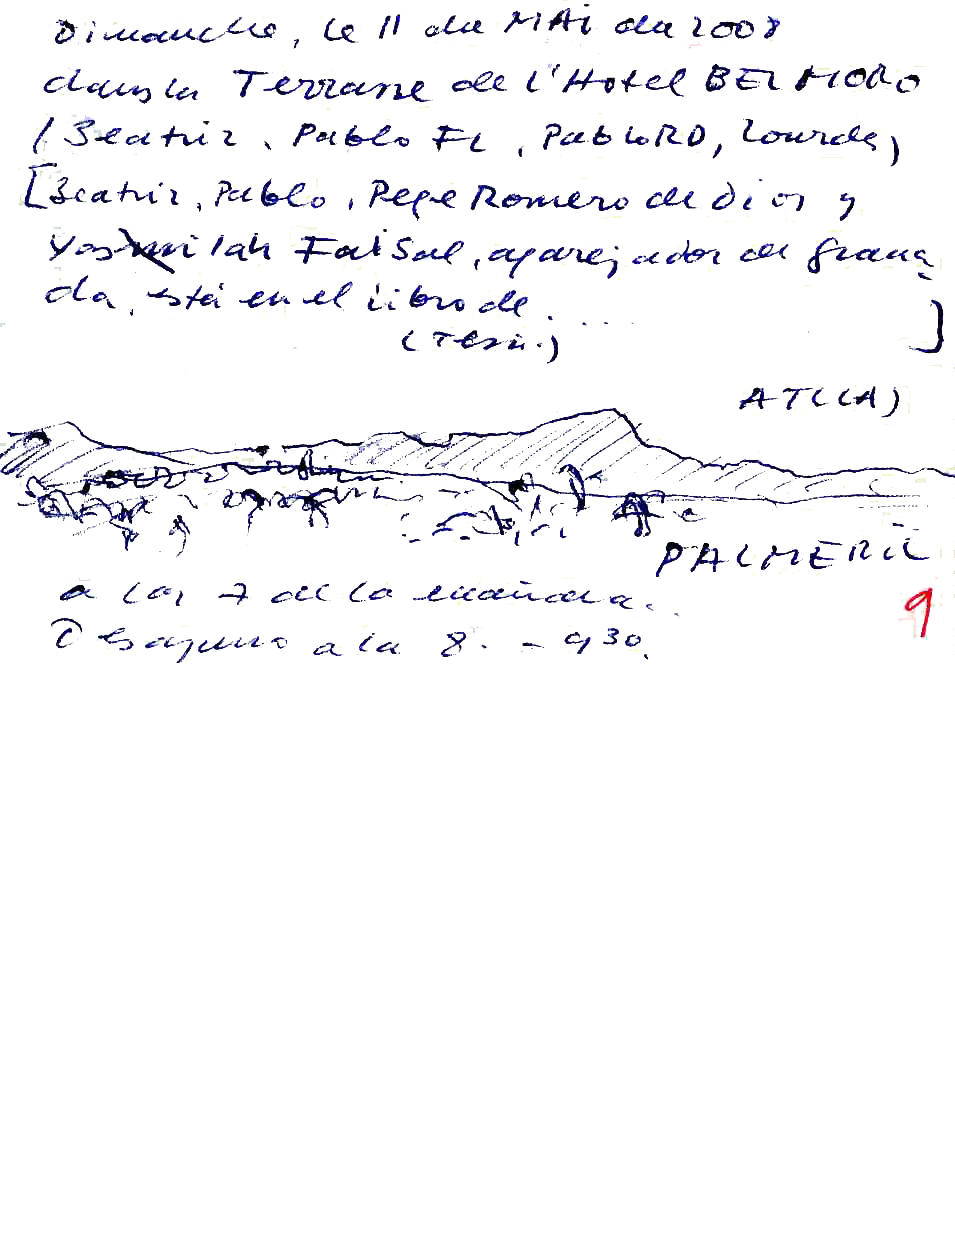 Dimanche, le 11 du MAi du 2008
dans la Terrasse de l'Hotel BEL MORO
(Beatriz, Pablo FL, PABLO RD, Lourdes)
[Beatriz, Pablo, Pepe Romero de Dios y
Faisal, aparejador de Grana
da, está en el libro de ....
(Tesis.) ]
ATLLA)
PALMERIL
a las 7 de la mañana..
Desayuno a la 8. - 930.
9